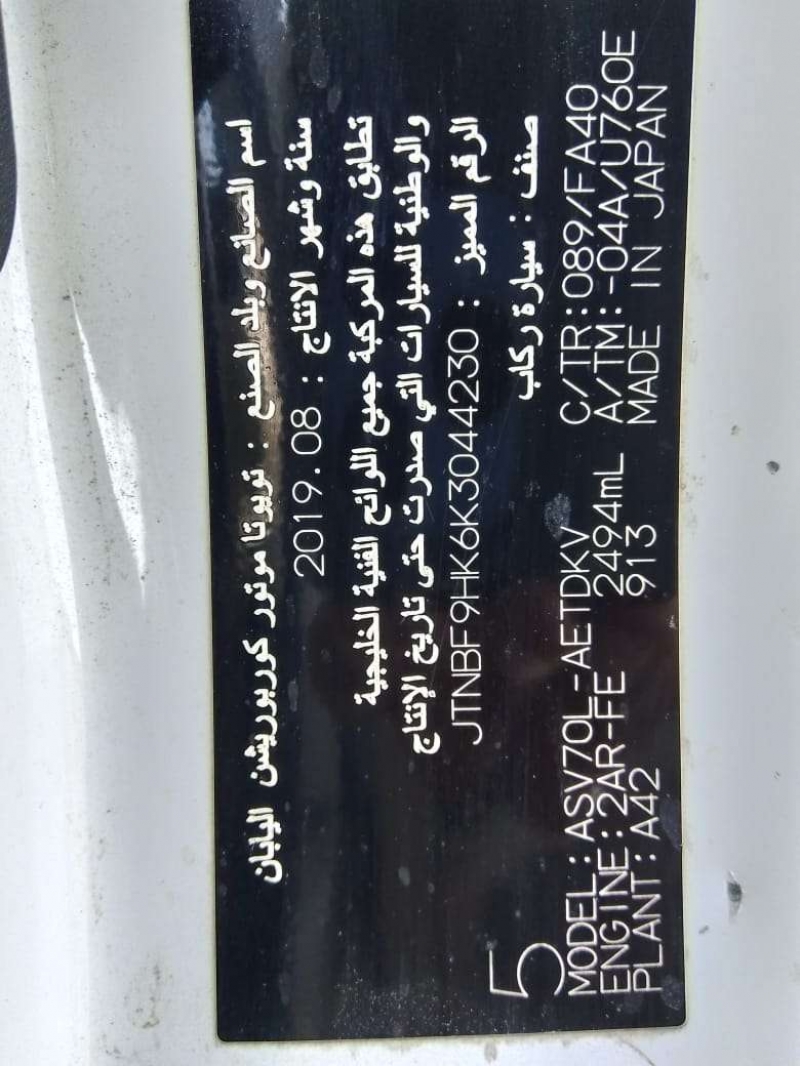 اسم الصانع وبلد الصنع : تويوتا موتور كوربوريشن اليابان
سنة وشهر الانتاج : 2019.08
تطابق هذه المركبة جميع اللوائح الفنية الخليجية
والوطنية للسيارات التي صدرت حتى تاريخ الإنتاج
الرقم المميز : JTNBF9HK6K3044230
صنف : سيارة ركاب
5
MODEL:ASV70L-AETDKV C/TR:089/FA40
ENGINE:2AR-FE 2494mL A/TM:-04A/U760E
PLANT:A42 913 MADE IN JAPAN